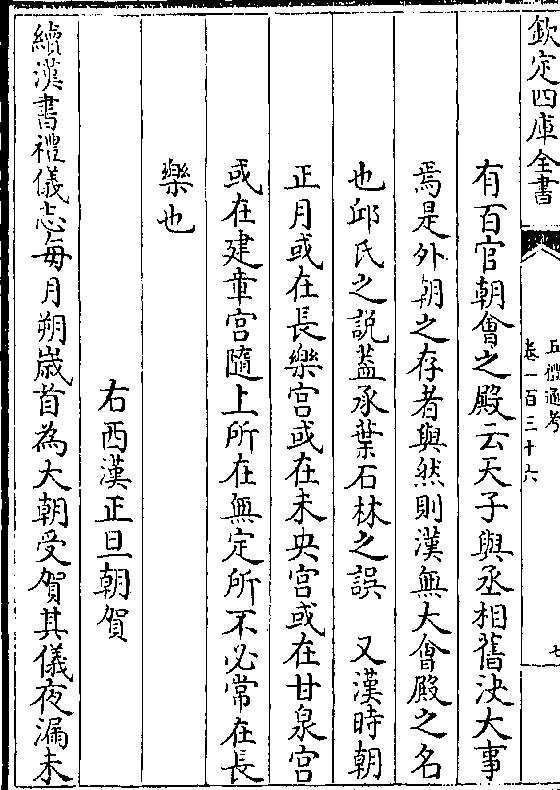 欽定四庫全書
五禮通考
卷一百三十六
七
有百官朝會之殿云天子與丞相舊決大事
焉是外朝之存者與然則漢無大會殿之名
也邱氏之說蓋承葉石林之誤　又漢時朝
正月或在長樂宫或在未央宫或在甘泉宫
或在建章宫隨上所在無定所不必常在長
樂也
右西漢正旦朝賀
續漢書禮儀志每月朔歲首為大朝受賀其儀夜漏未